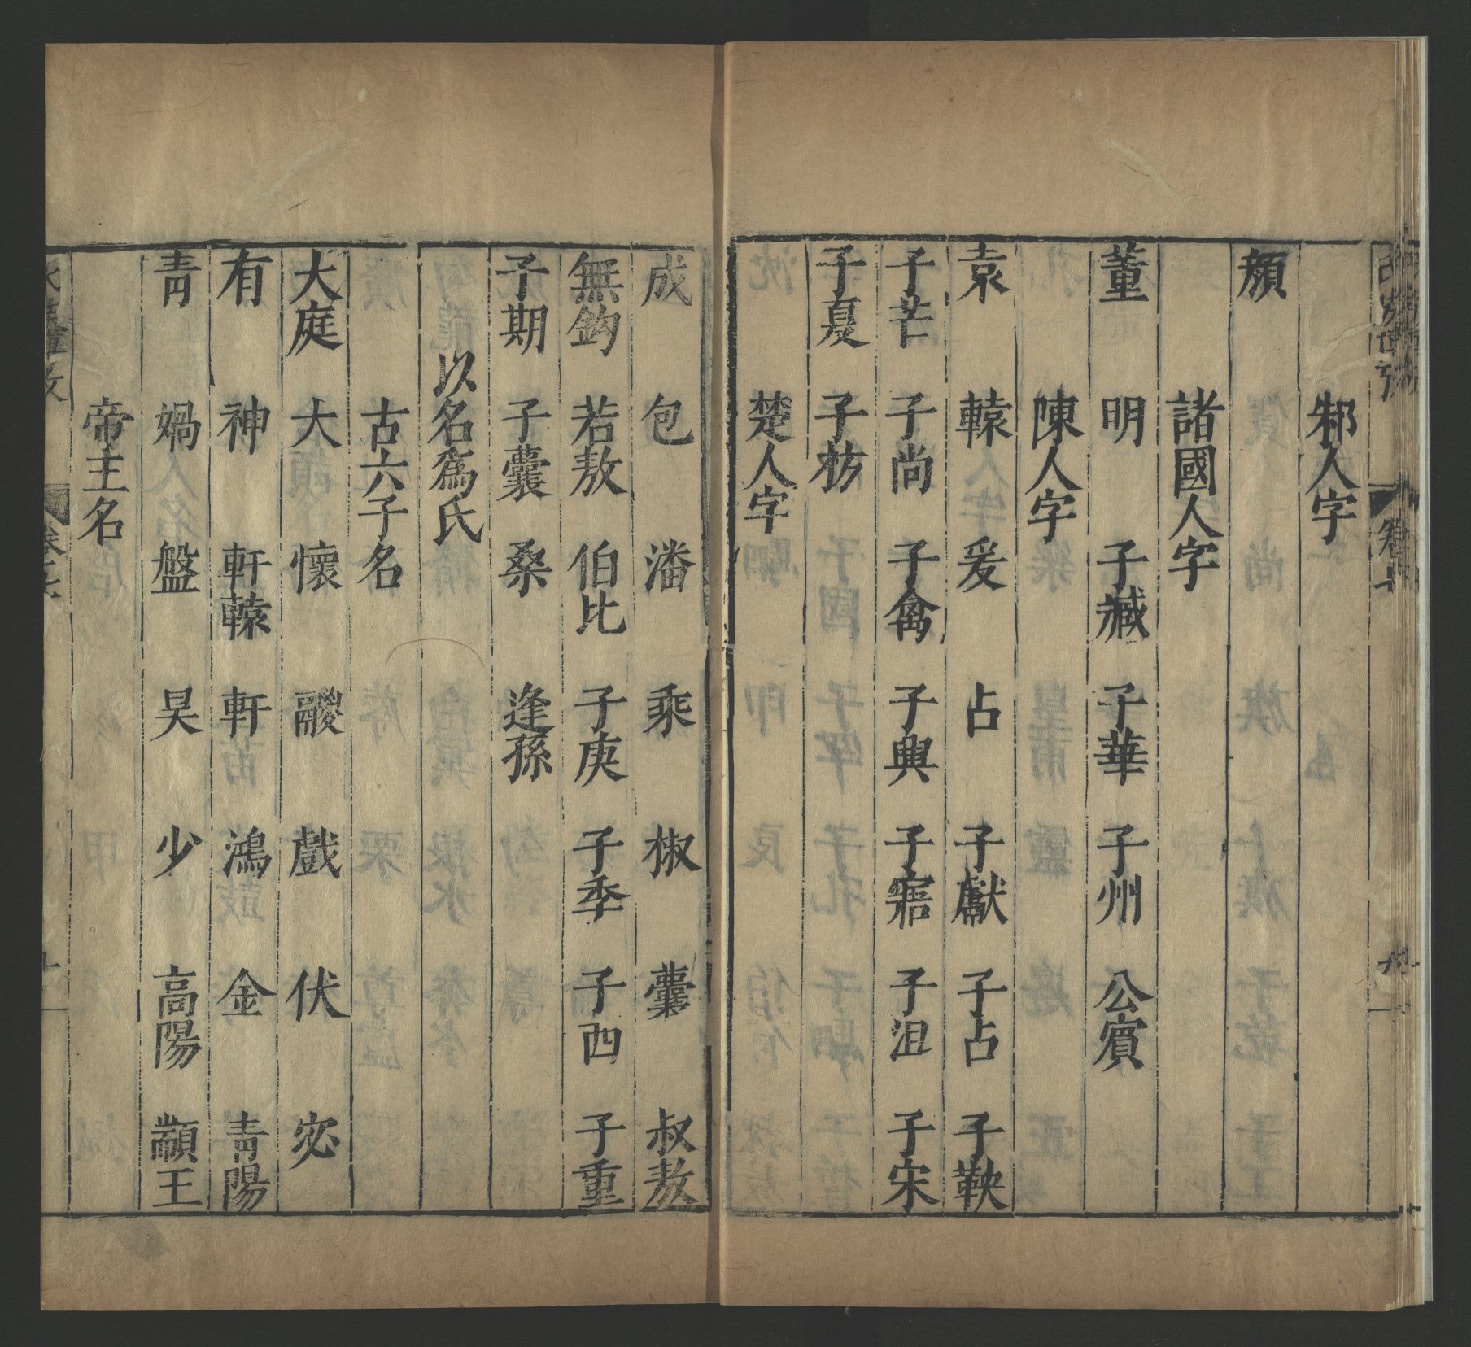 邾人字
顏
諸國人字
董 明 子臧 子華 子州 公賓
陳人字
袁 轅 爰 占 子獻 子占 子鞅
子芒 子尚 子禽 子輿 子寤 子沮 子宋
子夏 子枋
楚人字
成 包 潘 乘 椒 囊 叔敖
無鈎 若敖 伯比 子庚 子季 子西 子重
子期 子囊 桑 逢孫
以名爲氏
古六子名
大庭 大 懷 戲 伏 宓
有 神 軒轅 軒 鴻 金 青陽
青 媧 盤 昊 少 高陽 顓王
帝王名